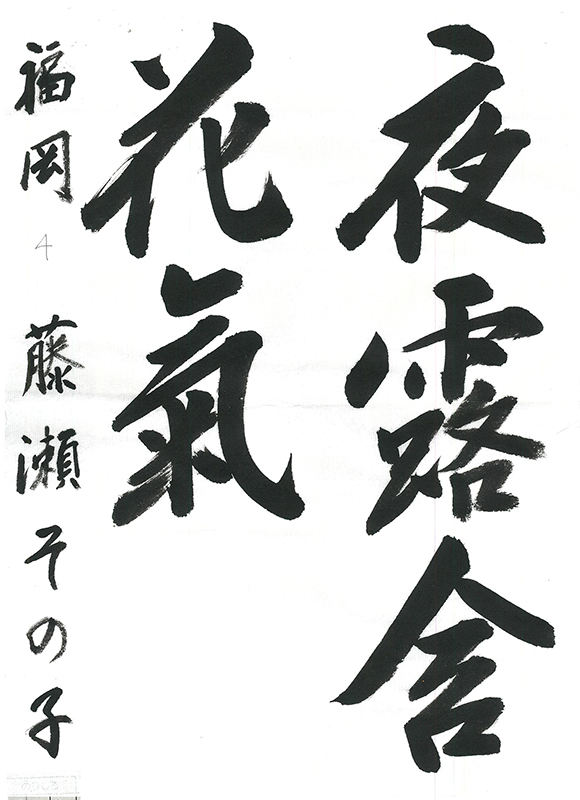 夜露含
花氣
福岡 4 藤瀬その子